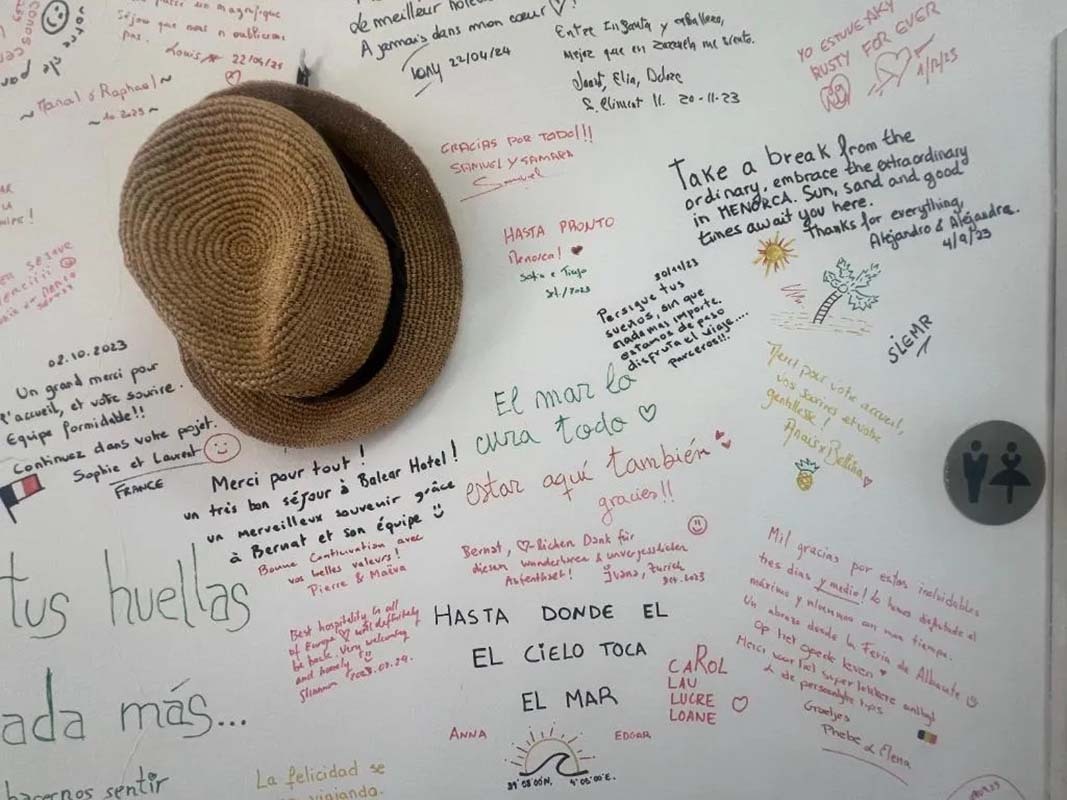 magnifique
séjour que nous n'oublierons
pas. Louis 22/04/24
~ Manal & Raphael ~
~ 10.2023 ~
de meilleur
A jamais dans mon cœur ♡!
Tony 22/04/24
Mejor que en
Elia,
20-11-23
YO ESTUVE AKY
RUSTY FOR EVER
1/12/23
GRACIAS POR TODO!!!
SAMUEL Y SAMARA
Samuel
Take a break from the
ordinary, embrace the extraordinary
in MENORCA. Sun, sand and good
times await you here.
Thanks for everything,
Alejandro & Alejandra.
4/9/23
HASTA PRONTO
Menorca! ♥
30/11/23
Persigue tus
sueños, sin que
nada mas importe.
estamos de paso
disfruta el viaje....
parceros!!!
SIEMR
02.10.2023
Un grand merci pour
l'accueil, et votre sourire.
Equipe formidable!!
Continuez dans votre projet.
Sophie et Laurent
FRANCE
El mar lo
cura todo ♡
estar aquí también
gracias!!
Merci pour votre accueil,
vos sourires et votre
gentillesse!
Anaïs & Bettina
Merci pour tout!
un très bon séjour à Balear Hotel!
un merveilleux souvenir grâce
à Bernat et son équipe
Bonne Continuation avec
vos belles valeurs!
Pierre & Maïva
Bernat, ♡-lichen Dank für
diesen wunderbaren & unvergesslichen
Aufenthalt! Ivana, Zurich
2023
tus huellas
Best hospitality in all
of Europe ♡ will definitely
be back. Very welcoming
and homely
Shannon
HASTA DONDE EL
EL CIELO TOCA
EL MAR
CAROL
LAU
LUCRE
LOANE
ANNA
EDGAR
Mil gracias por estos inolvidables
tres días y medio! Lo hemos disfrutado al
máximo
Un abrazo desde la Feria de Albacete
Op het goede leven ♥
Merci voor het super lekkere ontbijt
& de persoonlijke tips
Groetjes
Phebe & Elena
ada más...
hacernos sentir
La felicidad se
viajando.